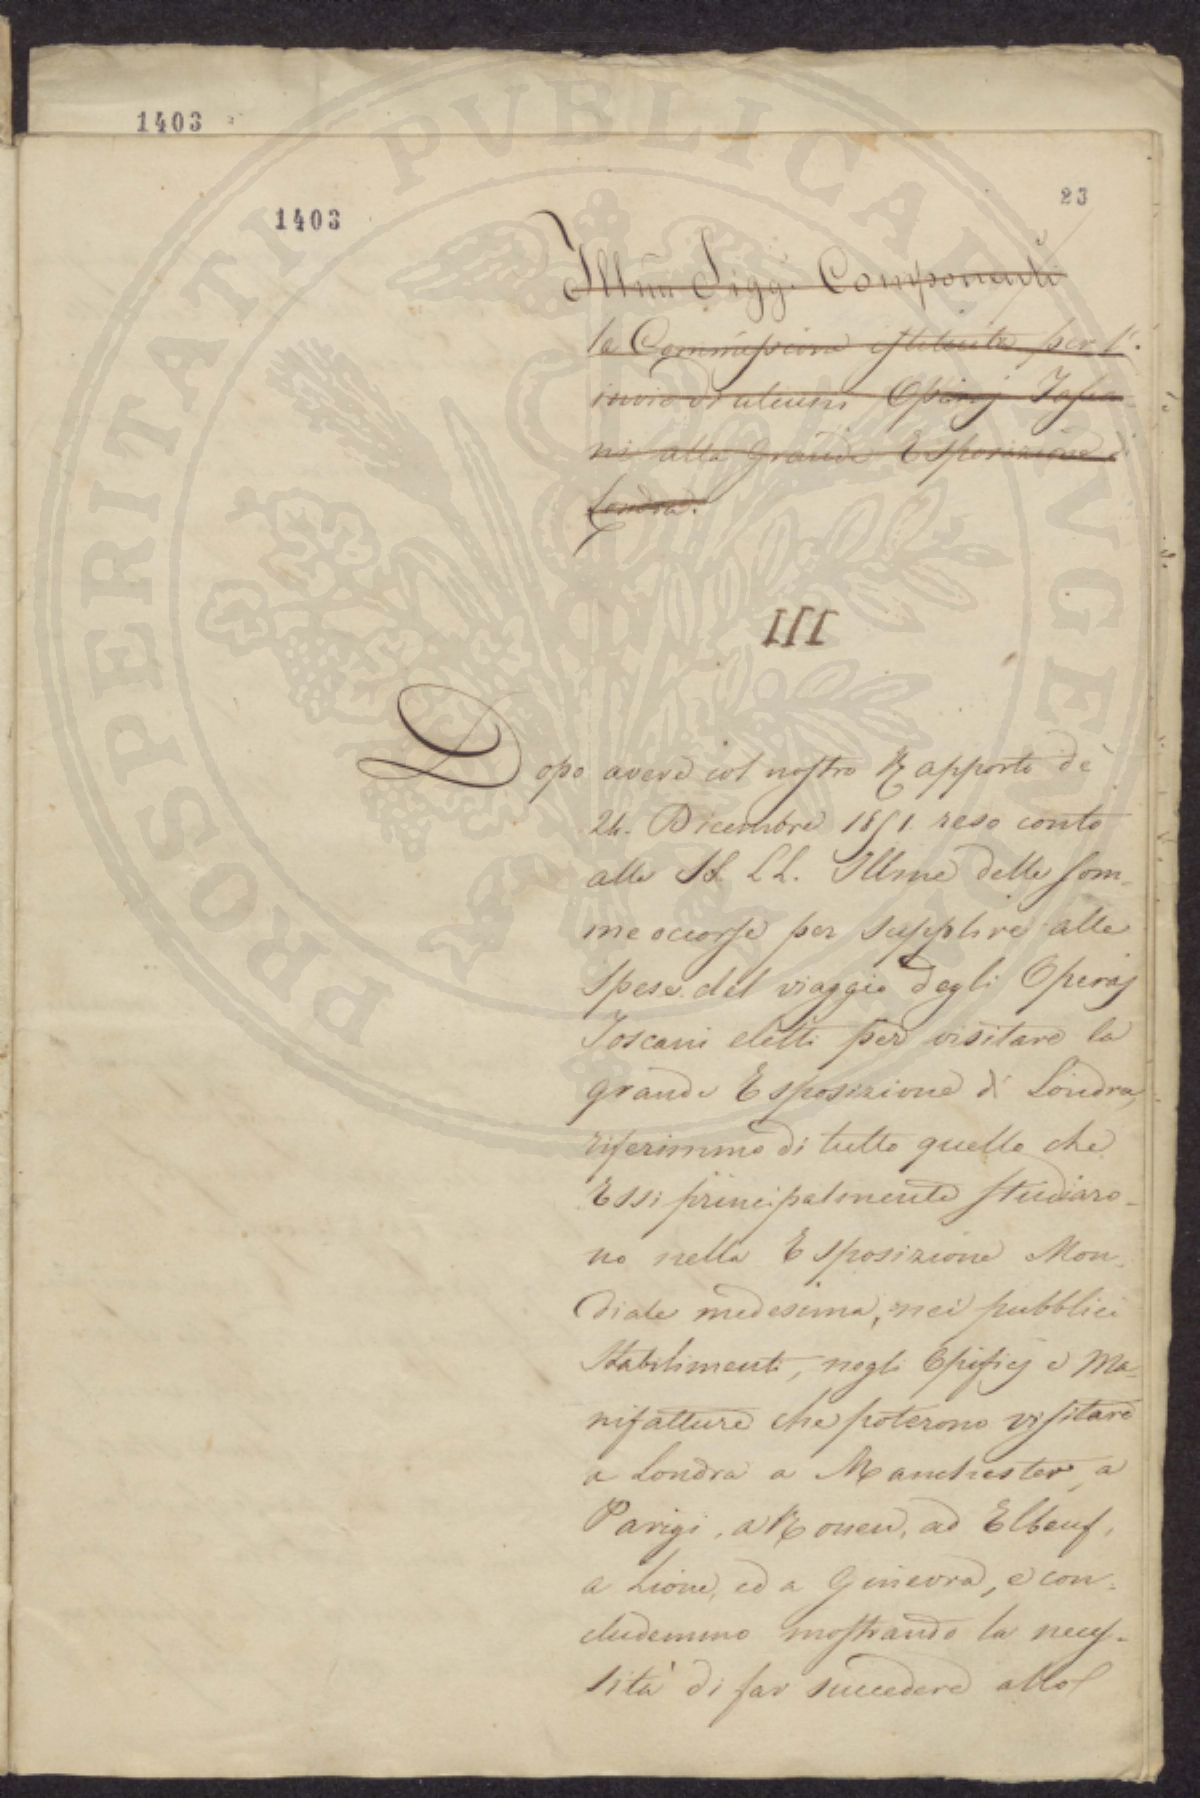 1403
1403
23
Illmi Sigg.i Componenti
la Commissione istituita per l'
invio di alcuni Operaj Tosca-
ni alla grande Esposizione di
Londra.
III
Dopo avere col nostro Rapporto de'
24. Dicembre 1851. reso conto
alle SS. LL. Illme delle som-
me occorse per supplire alle
spese del viaggio degli Operaj
Toscani eletti per visitare la
grande Esposizione di Londra,
riferimmo di tutto quello che
Essi principalmente studiaro-
no nella Esposizione Mon-
diale medesima, nei pubblici
Stabilimenti, negli Opificj e Ma-
nifatture che poterono visitare
a Londra a Manchester, a
Parigi, a Rouen, ad Elbeuf,
a Lione, ed a Ginevra, e con-
cludemmo mostrando la neces-
sità di far succedere allo
PROSPERITATI PVBLICAE AVGENDAE